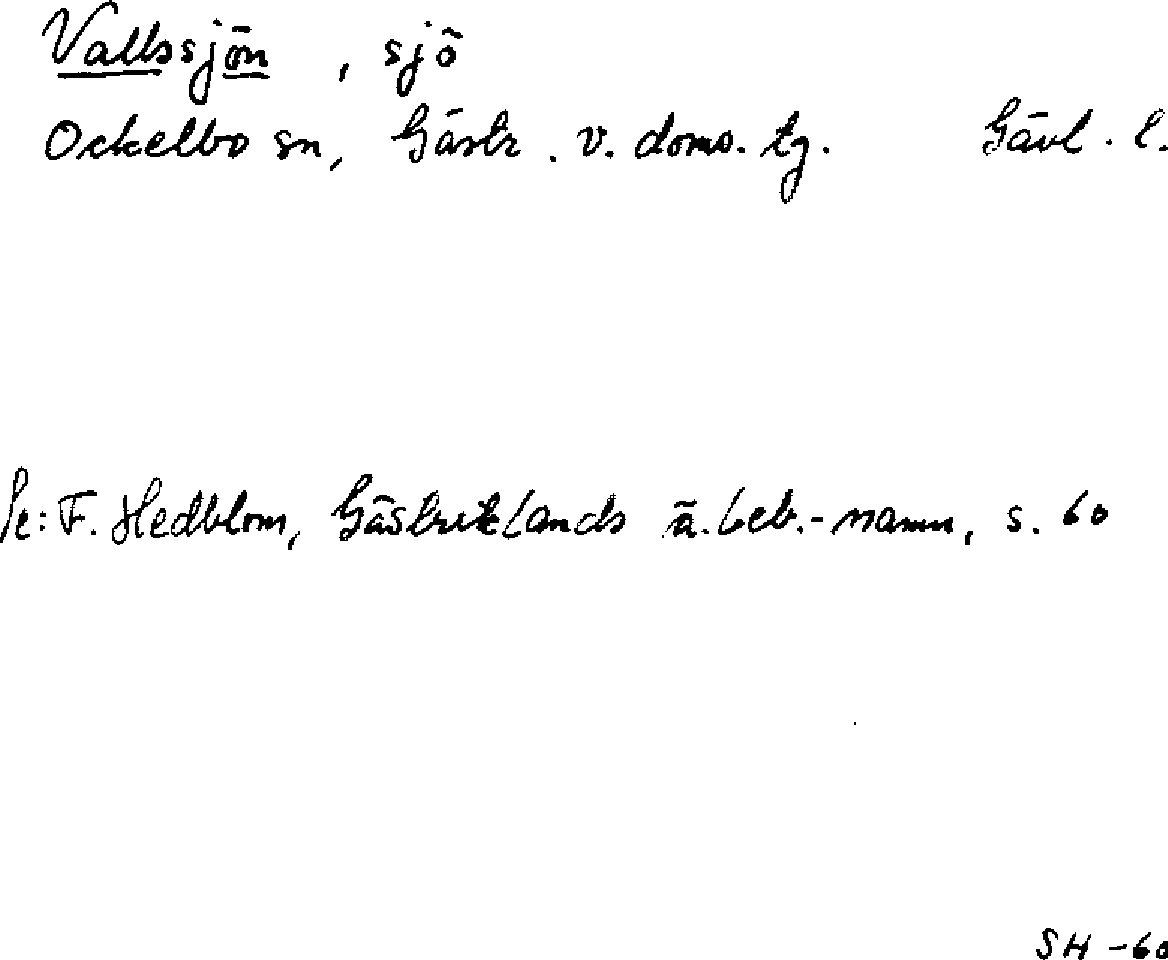 Vallssjön, sjö
Ockelbo sn, Gästr. v. doms. tg. Gävl. l.
Se: F. Hedblom, Gästriklands ä. beb.-namn, s. 60
SH -60